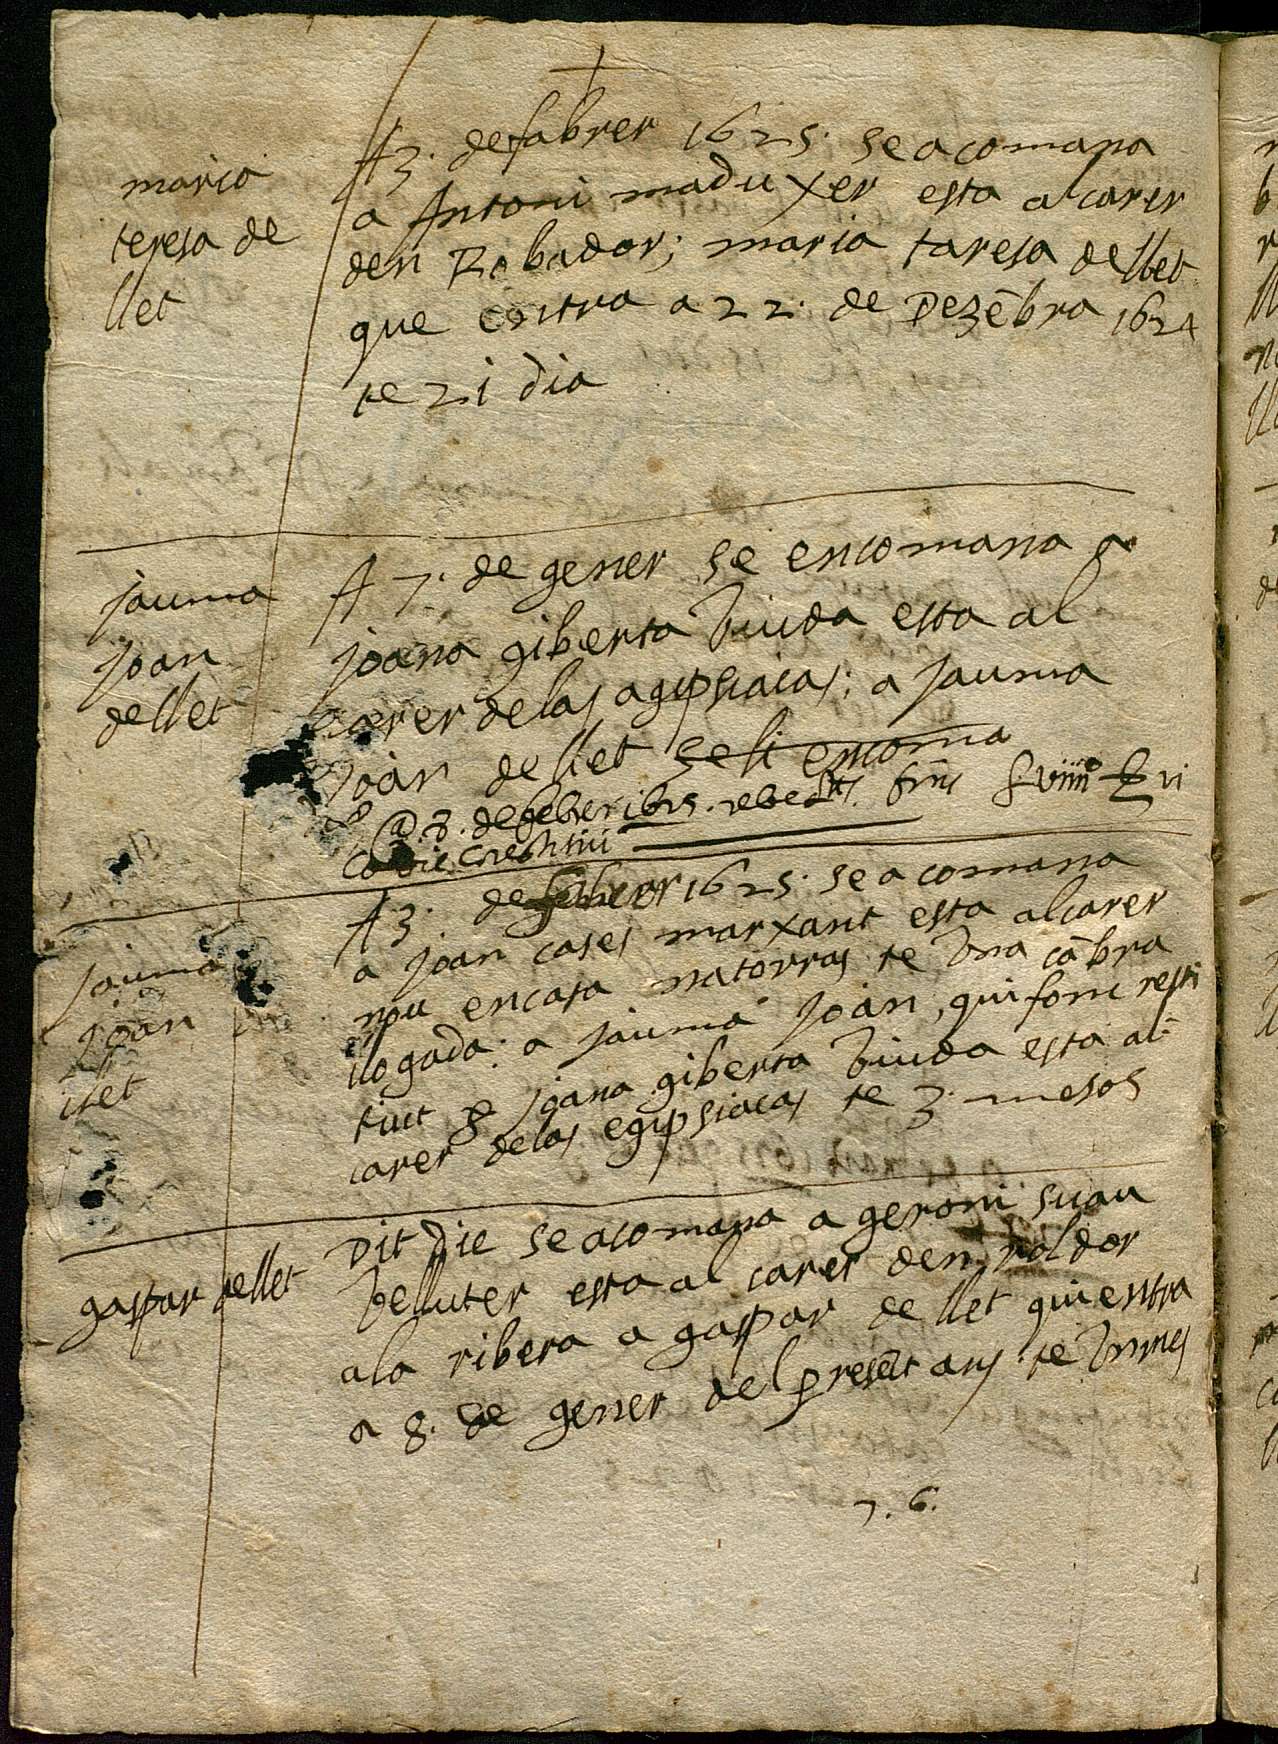 maria
teresa de
llet
A 3. de fabrer 1625. se acomana
a Antoni maduxer esta al carer
den Robador; maria taresa de llet
que entra a 22. de Dezēbra 1624
te 21 dia
jauma
joan
de llet
A 7. de gener se encomana a
joana giberta viuda esta al
carer de las agipsiacas; a jauma
joan de llet se li encoma
@ 3. de feber 1625. rebe
A 3. de 1625. se acomana
a joan cases marxant esta al carer
nou en casa na torras te una cābra
llogada. a jauma joan, qui fonc resti
tuit joana giberta viuda esta al
carer de las egipsiacas te 3. mesos
jauma
joan
llet
gaspar de llet
Dit die se acomana a geroni suau
velluter esta al carer den roldor
a la ribera a gaspar de llet qui entra
a 8. de gener del presēt any. te un mes
7. 6.